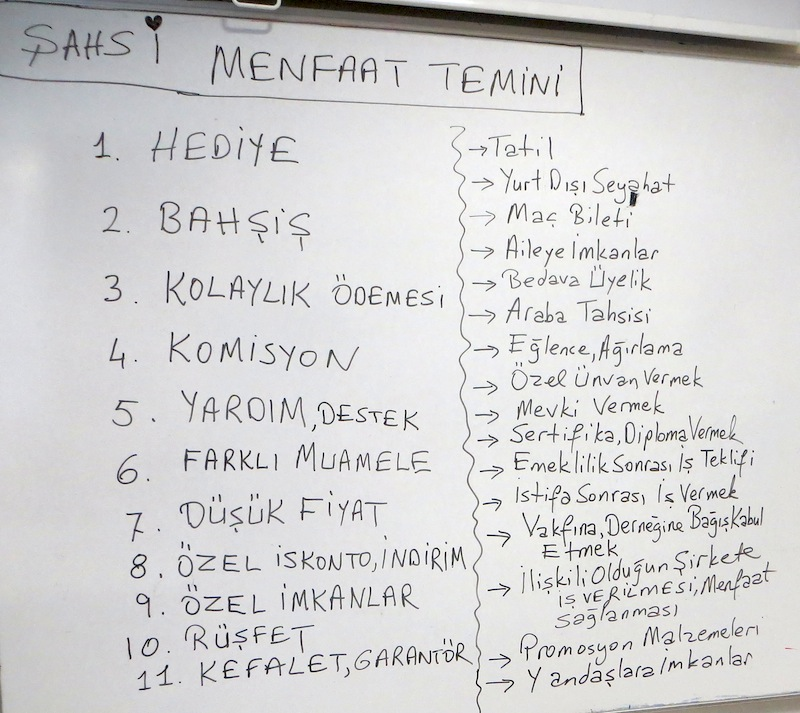 ŞAHSİ MENFAAT TEMİNİ
1. HEDİYE
2. BAHŞİŞ
3. KOLAYLIK ÖDEMESİ
4. KOMİSYON
5. YARDIM, DESTEK
6. FARKLI MUAMELE
7. DÜŞÜK FİYAT
8. ÖZEL İSKONTO, İNDİRİM
9. ÖZEL İMKANLAR
10. RÜŞFET
11. KEFALET, GARANTÖR
→ Tatil
→ Yurt Dışı Seyahat
→ Maç Bileti
→ Aileye İmkanlar
→ Bedava Üyelik
→ Araba Tahsisi
→ Eğlence, Ağırlama
→ Özel Ünvan Vermek
→ Mevki Vermek
→ Sertifika, Diploma Vermek
→ Emeklilik Sonrası İş Teklifi
→ İstifa Sonrası İş Vermek
→ Vakfına, Derneğine Bağış Kabul
Etmek
→ İlişkili Olduğun Şirkete
İŞ VERİLMESİ, Menfaat
Sağlanması
→ Promosyon Malzemeleri
→ Yandaşlara İmkanlar